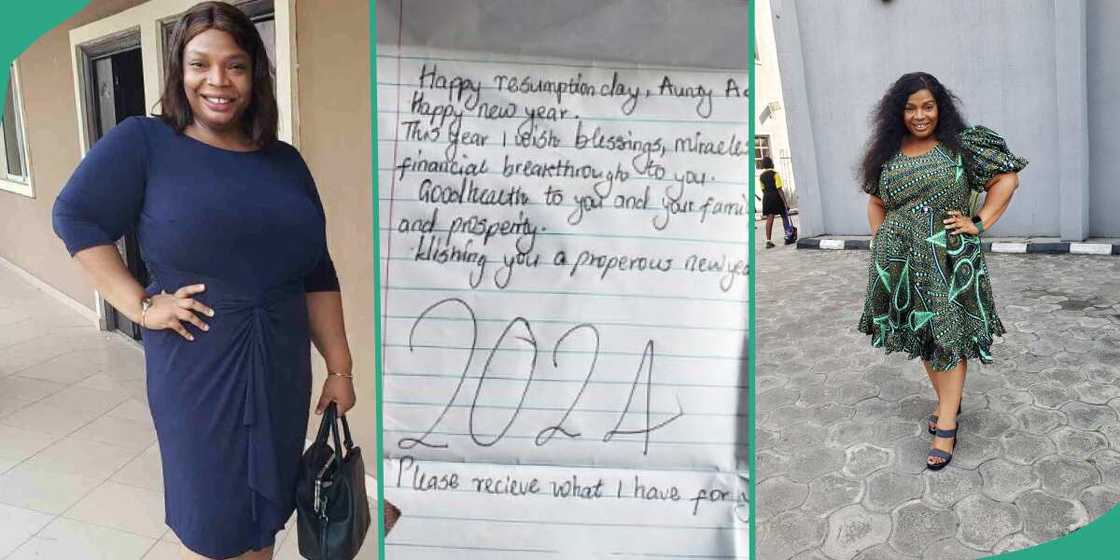 Happy resumption day, Aunty A
Happy new year.
This year I wish blessings, miracles
financial breakthrough to you.
Goodhealth to you and your fami
and prosperity.
Wishing you a properous new yea
2024
Please recieve what I have for y